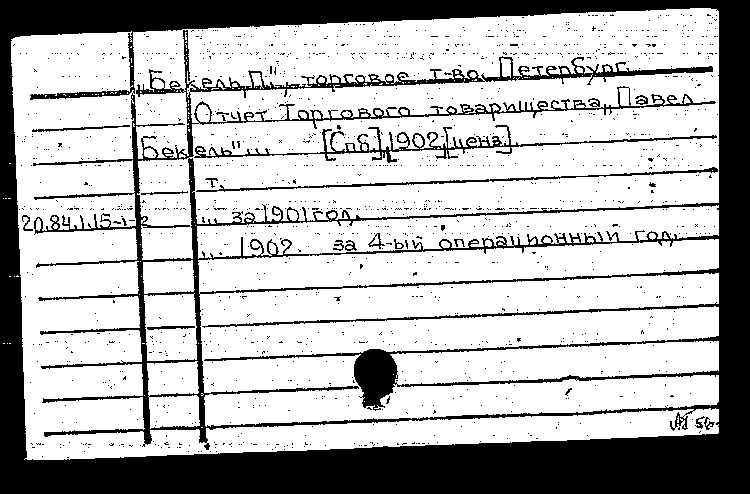 „Бекель,П.", торговое т-во. Петербург.
Отчет Торгового товарищества „Павел
Бекель"... [Спб.],1902,[ценз.].
т.
20.84.1.15-1-2 ... за 1901 год.
... 1902. за 4-ый операционный год.